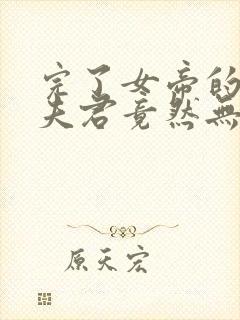 完了女帝的
夫君竟然無
原天宏